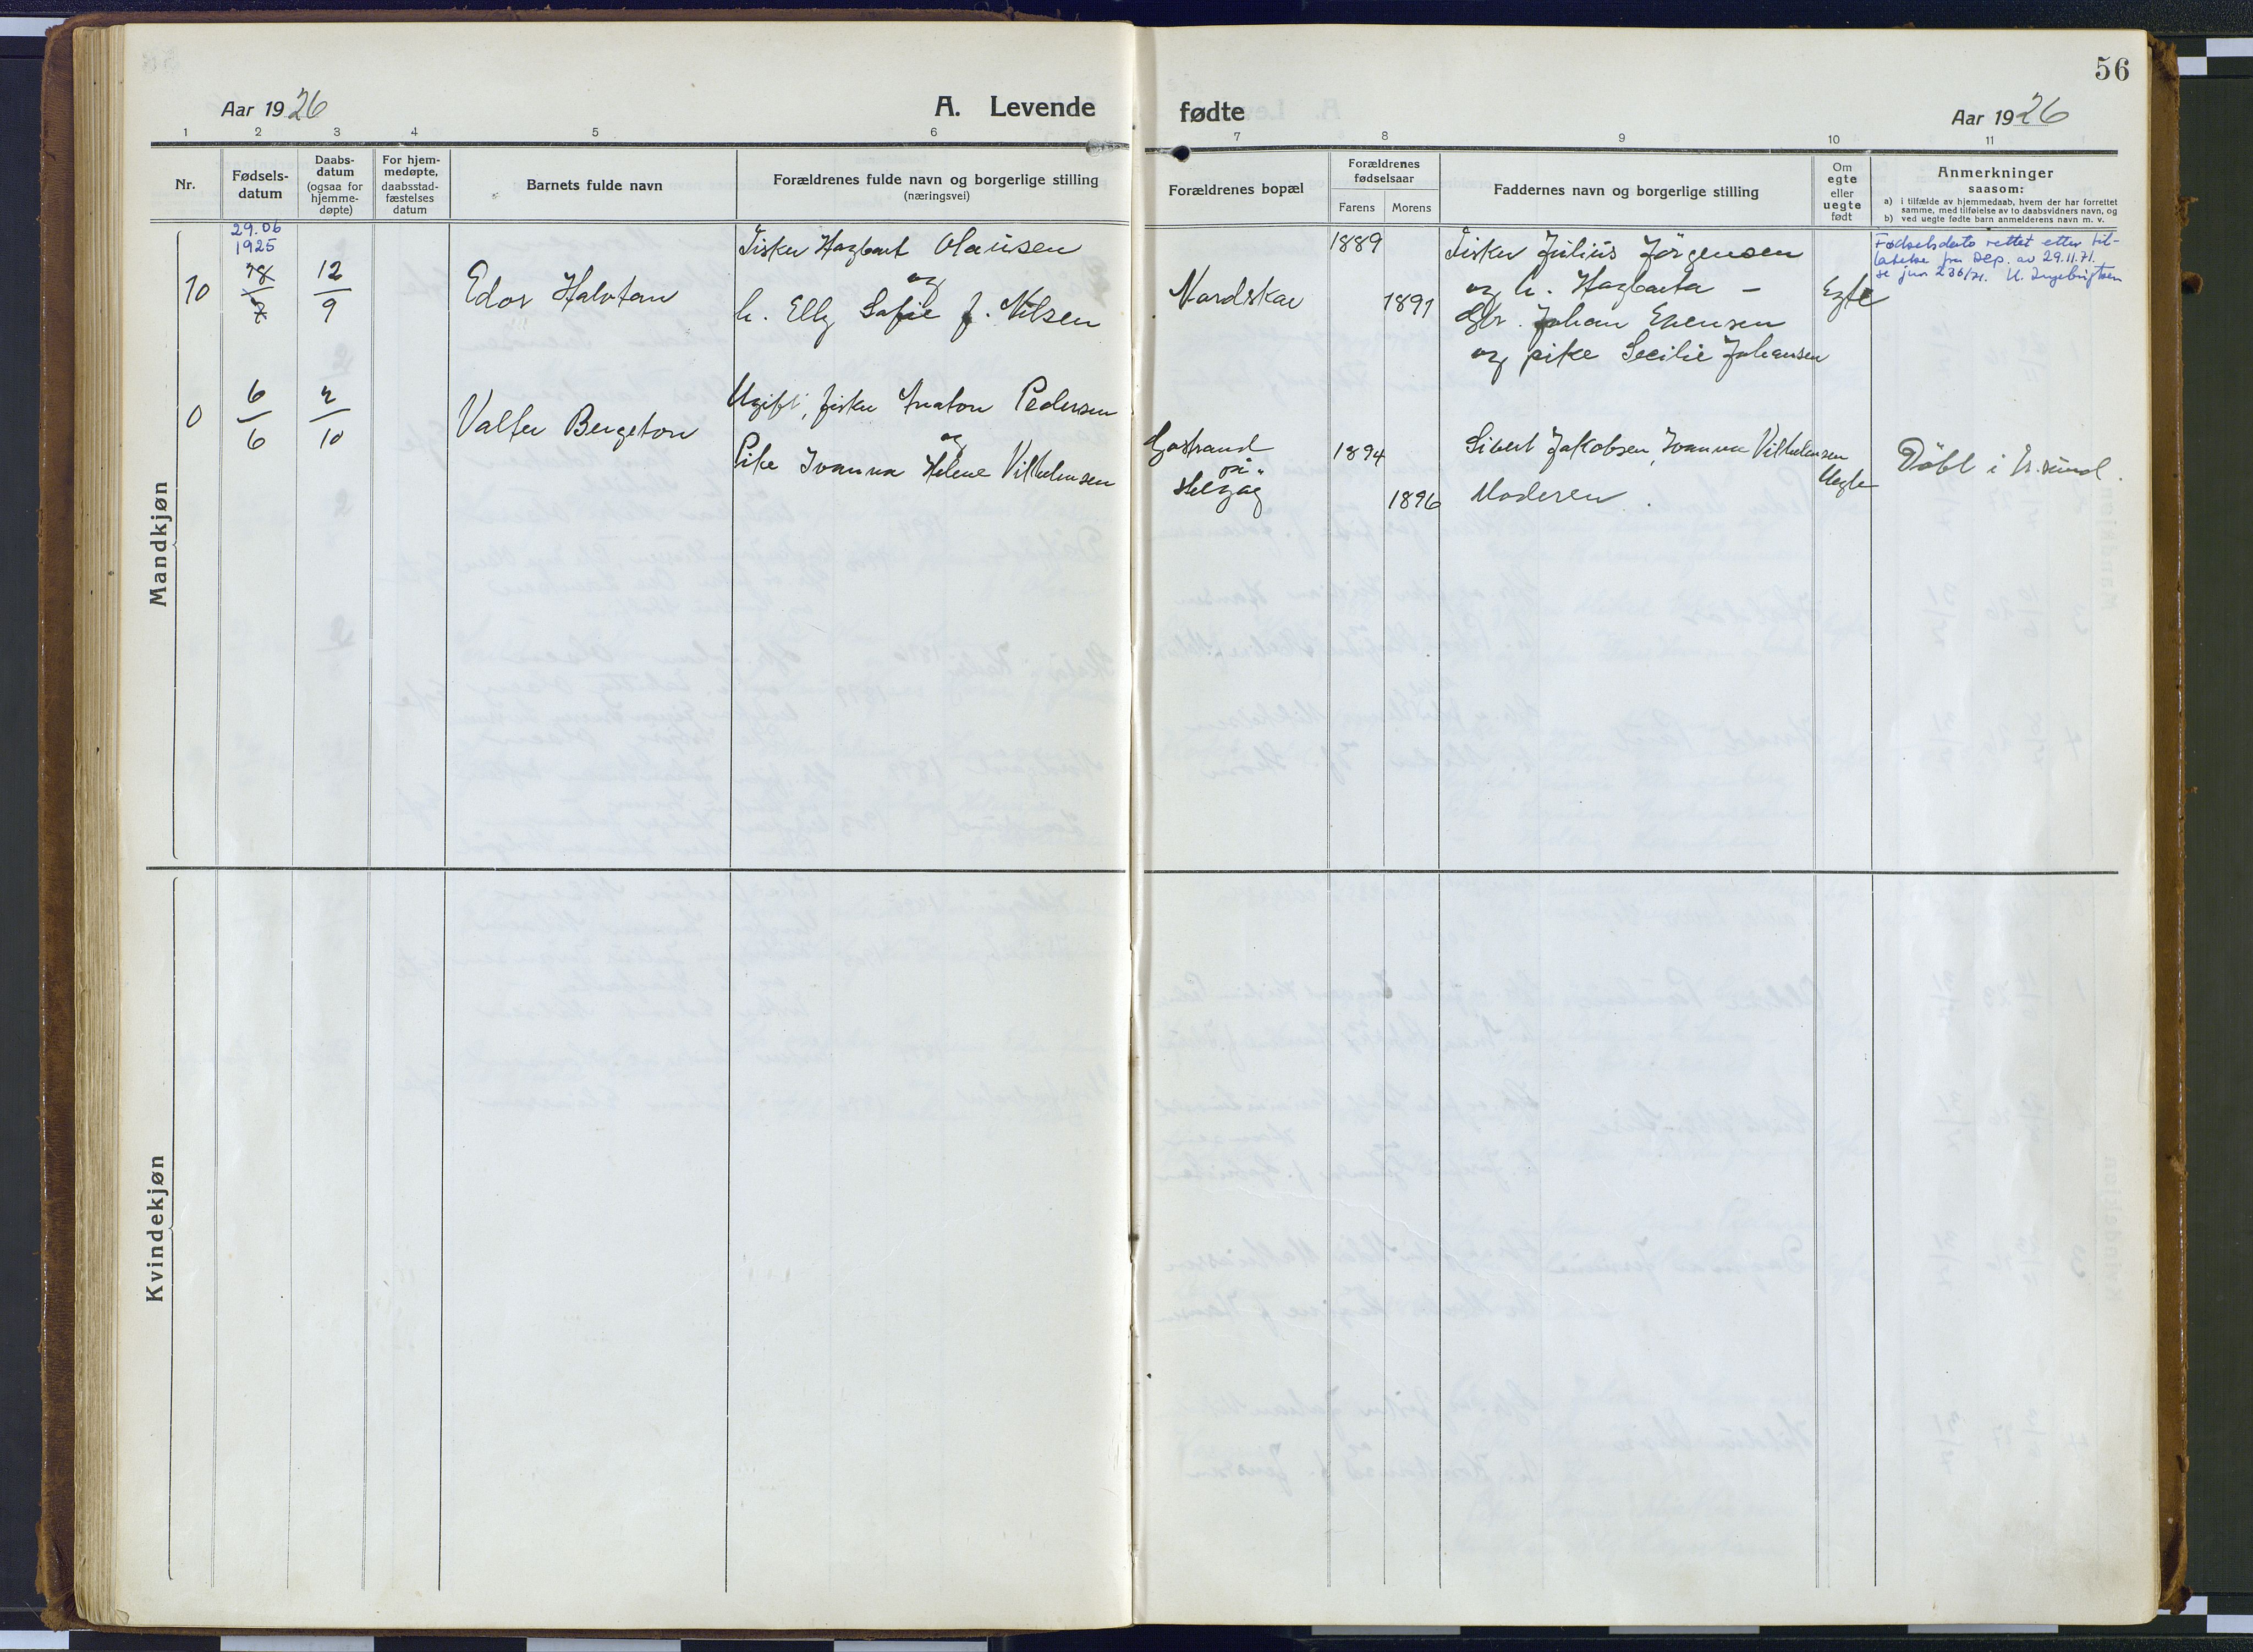 56
Aar 1926
A. Levende
fødte
Aar 1926
1 2 3 4 5 6 7 8 9 10 11
Nr.
Fødsels-
datum
Daabs-
datum
(ogsaa for
hjemme-
døpte)
For hjem-
medøpte,
daabsstad-
fæstelses
datum
Barnets fulde navn
Forældrenes fulde navn og borgerlige stilling
(næringsvei)
Forældrenes bopæl
Forældrenes
fødselsaar
Farens Morens
Faddernes navn og borgerlige stilling
Om
egte
eller
uegte
født
Anmerkninger
saasom:
a) i tilfælde av hjemmedaab, hvem der har forrettet
samme, med tilføielse av to daabsvidners navn, og
b) ved uegte fødte barn anmelderens navn m. v.
Mandkjøn
10
29.06
1925
18
7
12
9
Edor Halvtan
Fisker Hagbart Olausen
og
h. Elly Sofie f. Nilsen
Nordskar
1889
1891
Fisker Julius Jørgensen
og h. Hagbarta -
Gbr. Johan Evensen
og pike Secilie Johansen
Egte
Fødselsdato rettet etter til-
latelse fra Dep. av 29.11.71.
se jnr 236/71. U. Ingebrigtsen
0
6
6
2
10
Valter Bergeton
Ugift, fisker Anaton Pedersen
og
Pike Ivanna Helene Vilhelmsen
på
Helgøy
1894
1896
Sivert Jakobsen, Ivanna Vilhelmsen
Moderen.
Uegte
Døbt i H.sund.
Kvindekjøn